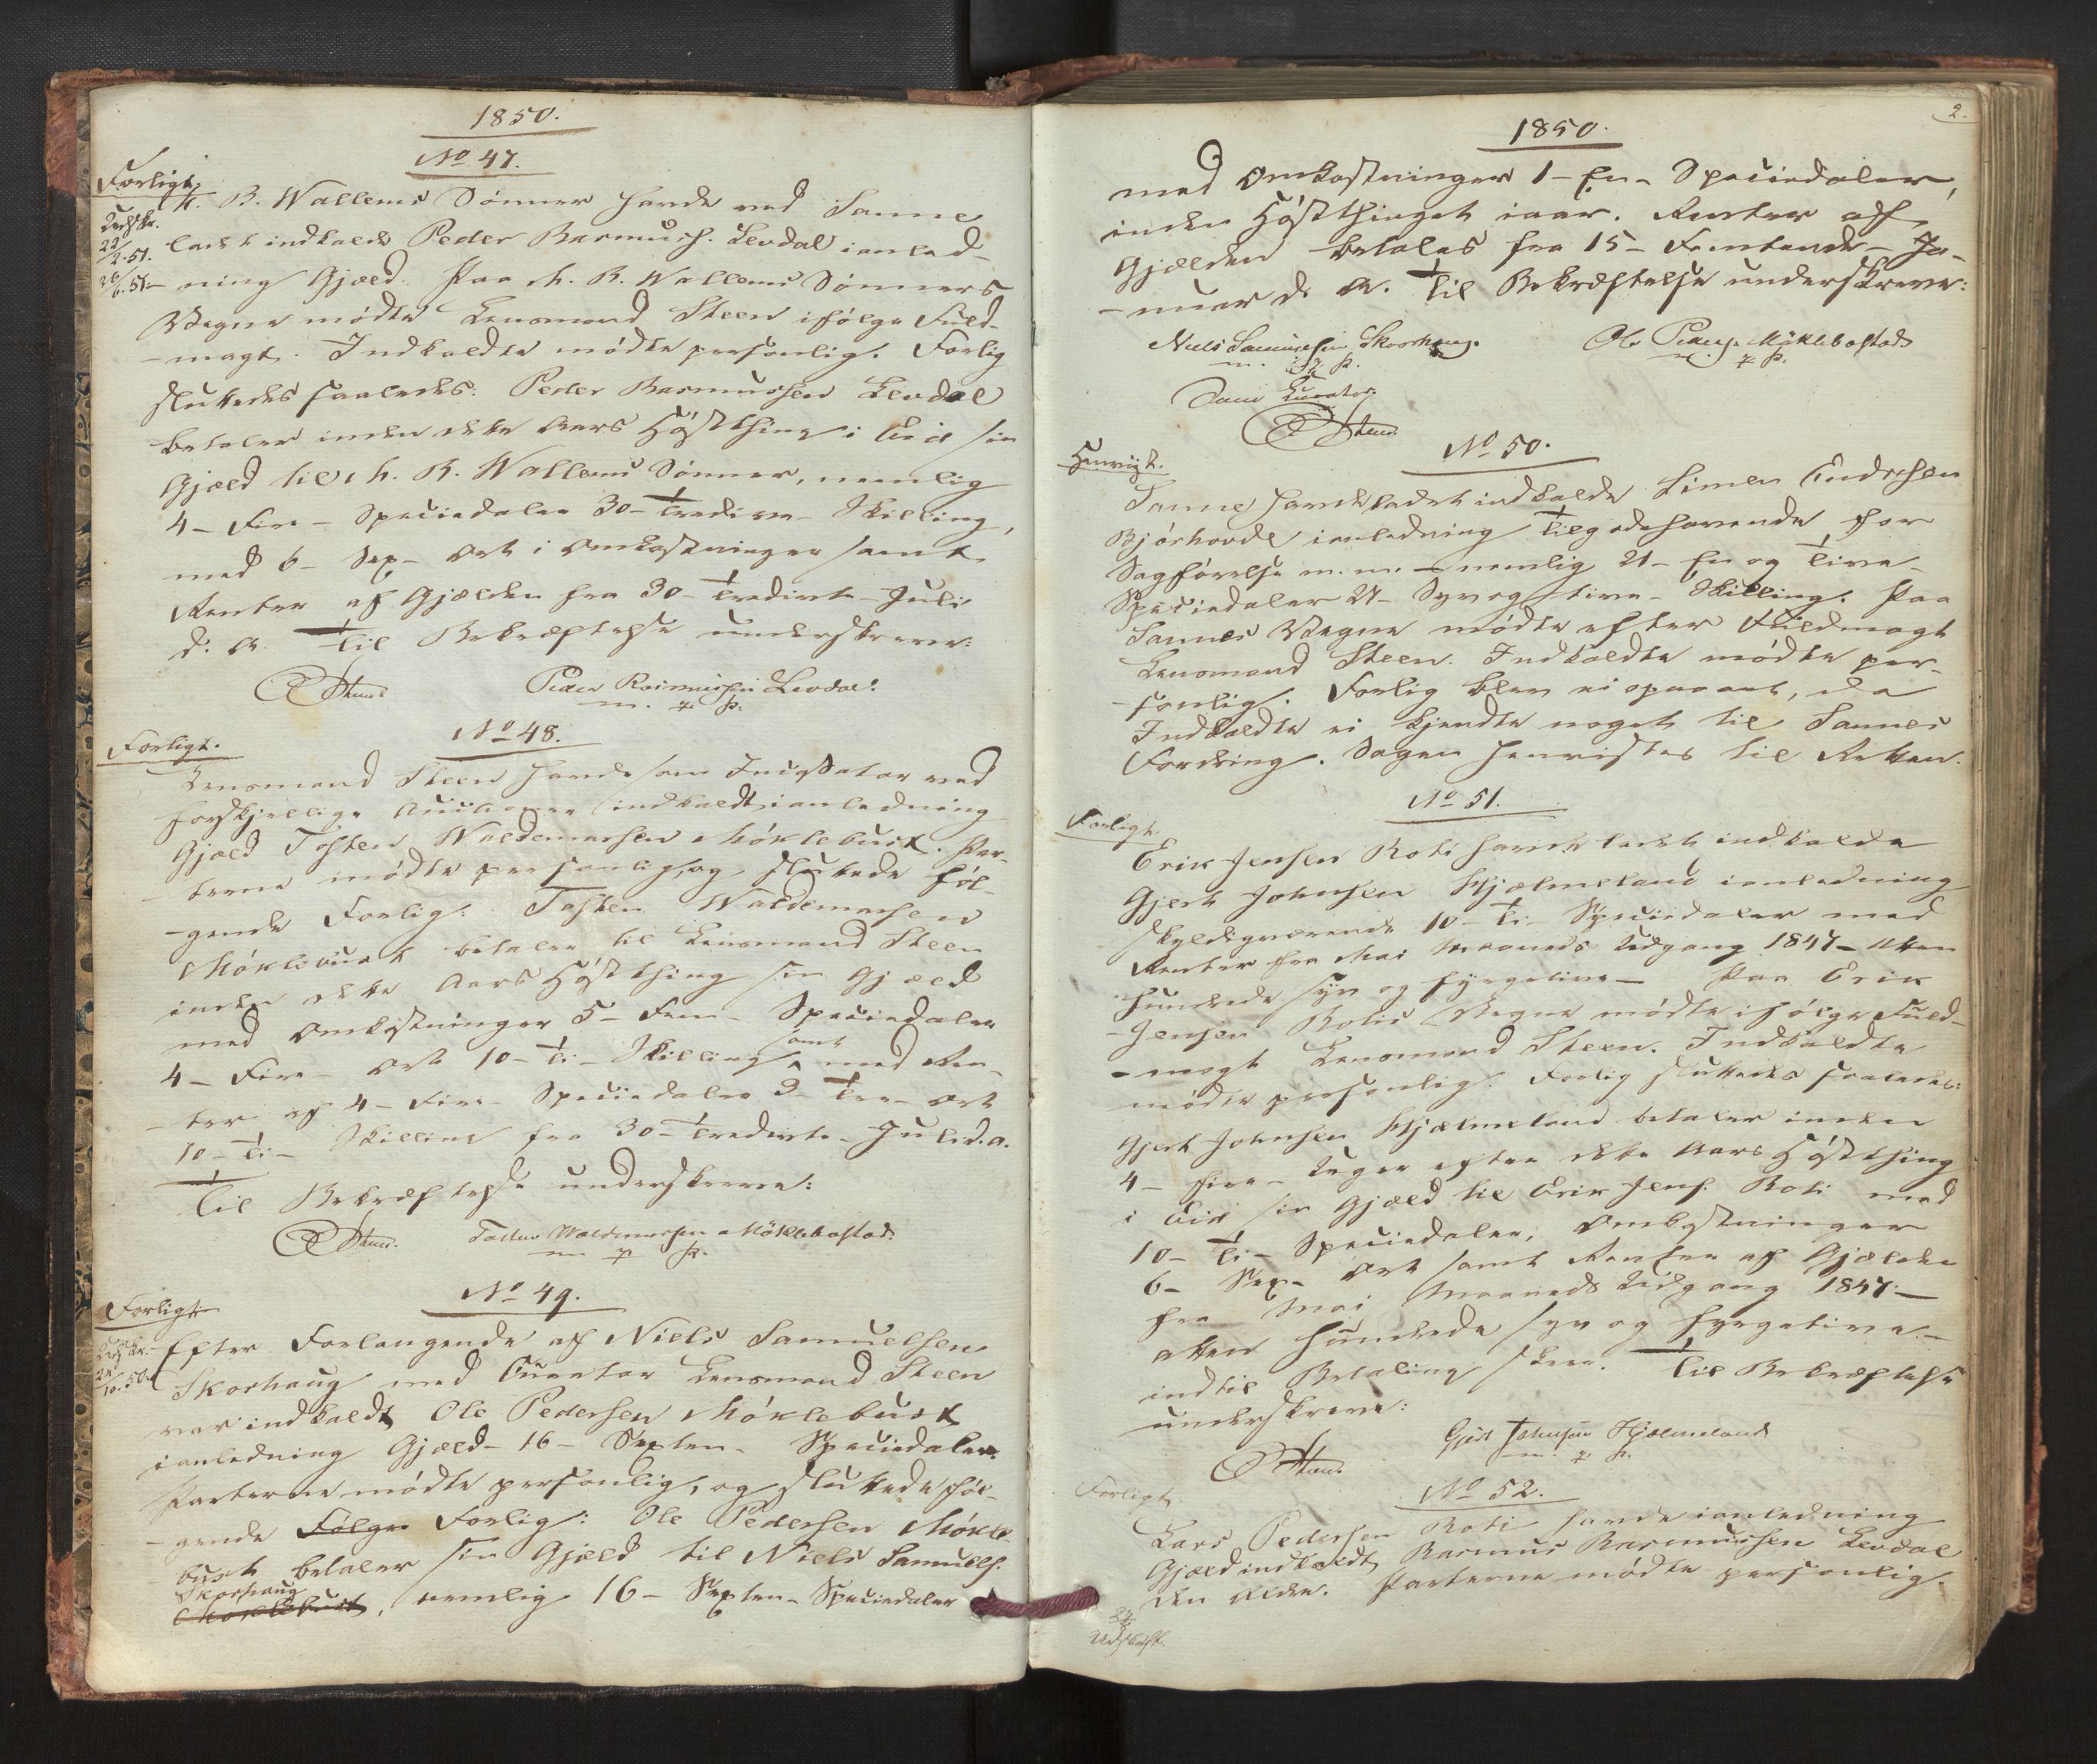 1850.
No 47.
Forligt.
Udskr.
22/2.51.
26/6.51.
H. B. Wallems Sønner havde ved Sanne
ladet indkalde Peder Rasmuss. Levdal i anled-
-ning Gjæld. Paa H. B. Wallems Sønners
Vegne mødte Lensmand Steen ifølge Fuld-
-magt. Indkaldte mødte personlig. Forlig
sluttedes saaledes: Peder Rasmussen Levdal
betaler inden dette Aars Høstthing i Eid sin
Gjæld til H. B. Wallems Sønner, nemlig
4 - Fire - Speciedaler 30 - Tredive - Skilling,
med 6 - Sex - Ort i Omkostninger samt
Renter af Gjælden fra 30 - Tredivte - Juli
d. A. Til Bekræftelse underskreve:
Steen
Peder Rasmussen Levdal.
m. p. p.
No 48.
Forligt.
Lensmand Steen havde som Incassator ved
forskjellige Auctioner indkaldt i anledning
Gjæld Tosten Waldemarsen Møklebust. Par-
-terne mødte personlig, og sluttede føl-
-gende Forlig: Tosten Waldemarsen
Møklebust betaler til Lensmand Steen
inden dette Aars Høstthing sin Gjæld
med Omkostninger 5 - Fem - Speciedaler
4 - Fire - Ort 10 - Ti - Skilling samt med Ren-
-ter af 4 - Fire - Speciedaler 3 - Tre - Ort
10 - Ti - Skilling fra 30 - Tredivte - Juli d. A.
Til Bekræftelse underskreve:
Steen.
Tosten Waldemarsen Møklebostad.
m p p.
No 49.
Forligt
Udskr.
10.50.
Efter Forlangende af Niels Samuelsen
Skorhaug med Curator Lensmand Steen
var indkaldt Ole Pedersen Møklebust
i anledning Gjæld - 16 - Sexten - Speciedaler.
Parterne mødte personlig, og sluttede føl-
-gende Følge Forlig: Ole Pedersen Møkle-
bust betaler sin Gjæld til Niels Samuels.
Skorhaug
Møklebust, nemlig 16 - Sexten - Speciedaler
2.
1850.
med Omkostninger 1 - En - Speciedaler,
inden Høstthinget i aar. Renter af
Gjælden betales fra 15 - Femtende - Ja-
-nuar d. A. Til Bekræftelse underskreve:
Niels Samuelsen Skorhaug.
m. p. p.
Ole Peders. Møklebostad
m. p. p.
Som Curator.
Steen
No 50.
Henviist.
Sanne havde ladet indkalde Simen Endresen
Bjørhovde i anledning Tilgodehavende for
Sagførelse m. m. - nemlig 21 - En og Tive -
Speciedaler 27 - Syv og tive - Skilling. Paa
Sannes Vegne mødte efter Fuldmagt
Lensmand Steen. Indkaldte mødte per-
-sonlig. Forlig blev ei opnaaet, da
Indkaldte ei kjendte noget til Sannes
Fordring. Sagen henvistes til Retten.
No 51.
Forligt.
Erik Jensen Roti havde ladet indkalde
Gjert Johnsen Hjælmeland i anledning
skyldigværende 10 - Ti - Speciedaler med
Renter fra Mai Maaneds Udgang 1847 - Atten
hundrede syv og fyrgetive - Paa Erik
-Jensen Rotis Vegne mødte ifølge Fuld-
-magt Lensmand Steen. Indkaldte
mødte personlig. Forlig sluttedes saaledes:
Gjert Johnsen Hjælmeland betaler inden
4 - fire - Uger efter dette Aars Høstthing
i Eid sin Gjæld til Erik Jens. Roti med
10 - Ti - Speciedaler, Omkostninger
6 - Sex - Ort samt Renter af Gjælden
fra Mai Maaneds Udgang 1847 -
atten hundrede syv og fyrgetive -
indtil Betaling skeer. Til Bekræftelse
underskreve:
Steen
Gjert Johnsen Hjælmeland
m. p. p.
No 52.
Forligt
Lars Pedersen Roti havde i anledning
Gjæld indkaldt Rasmus Rasmussen Levdal
den Ældre. Parterne mødte personlig.
Udskrift.